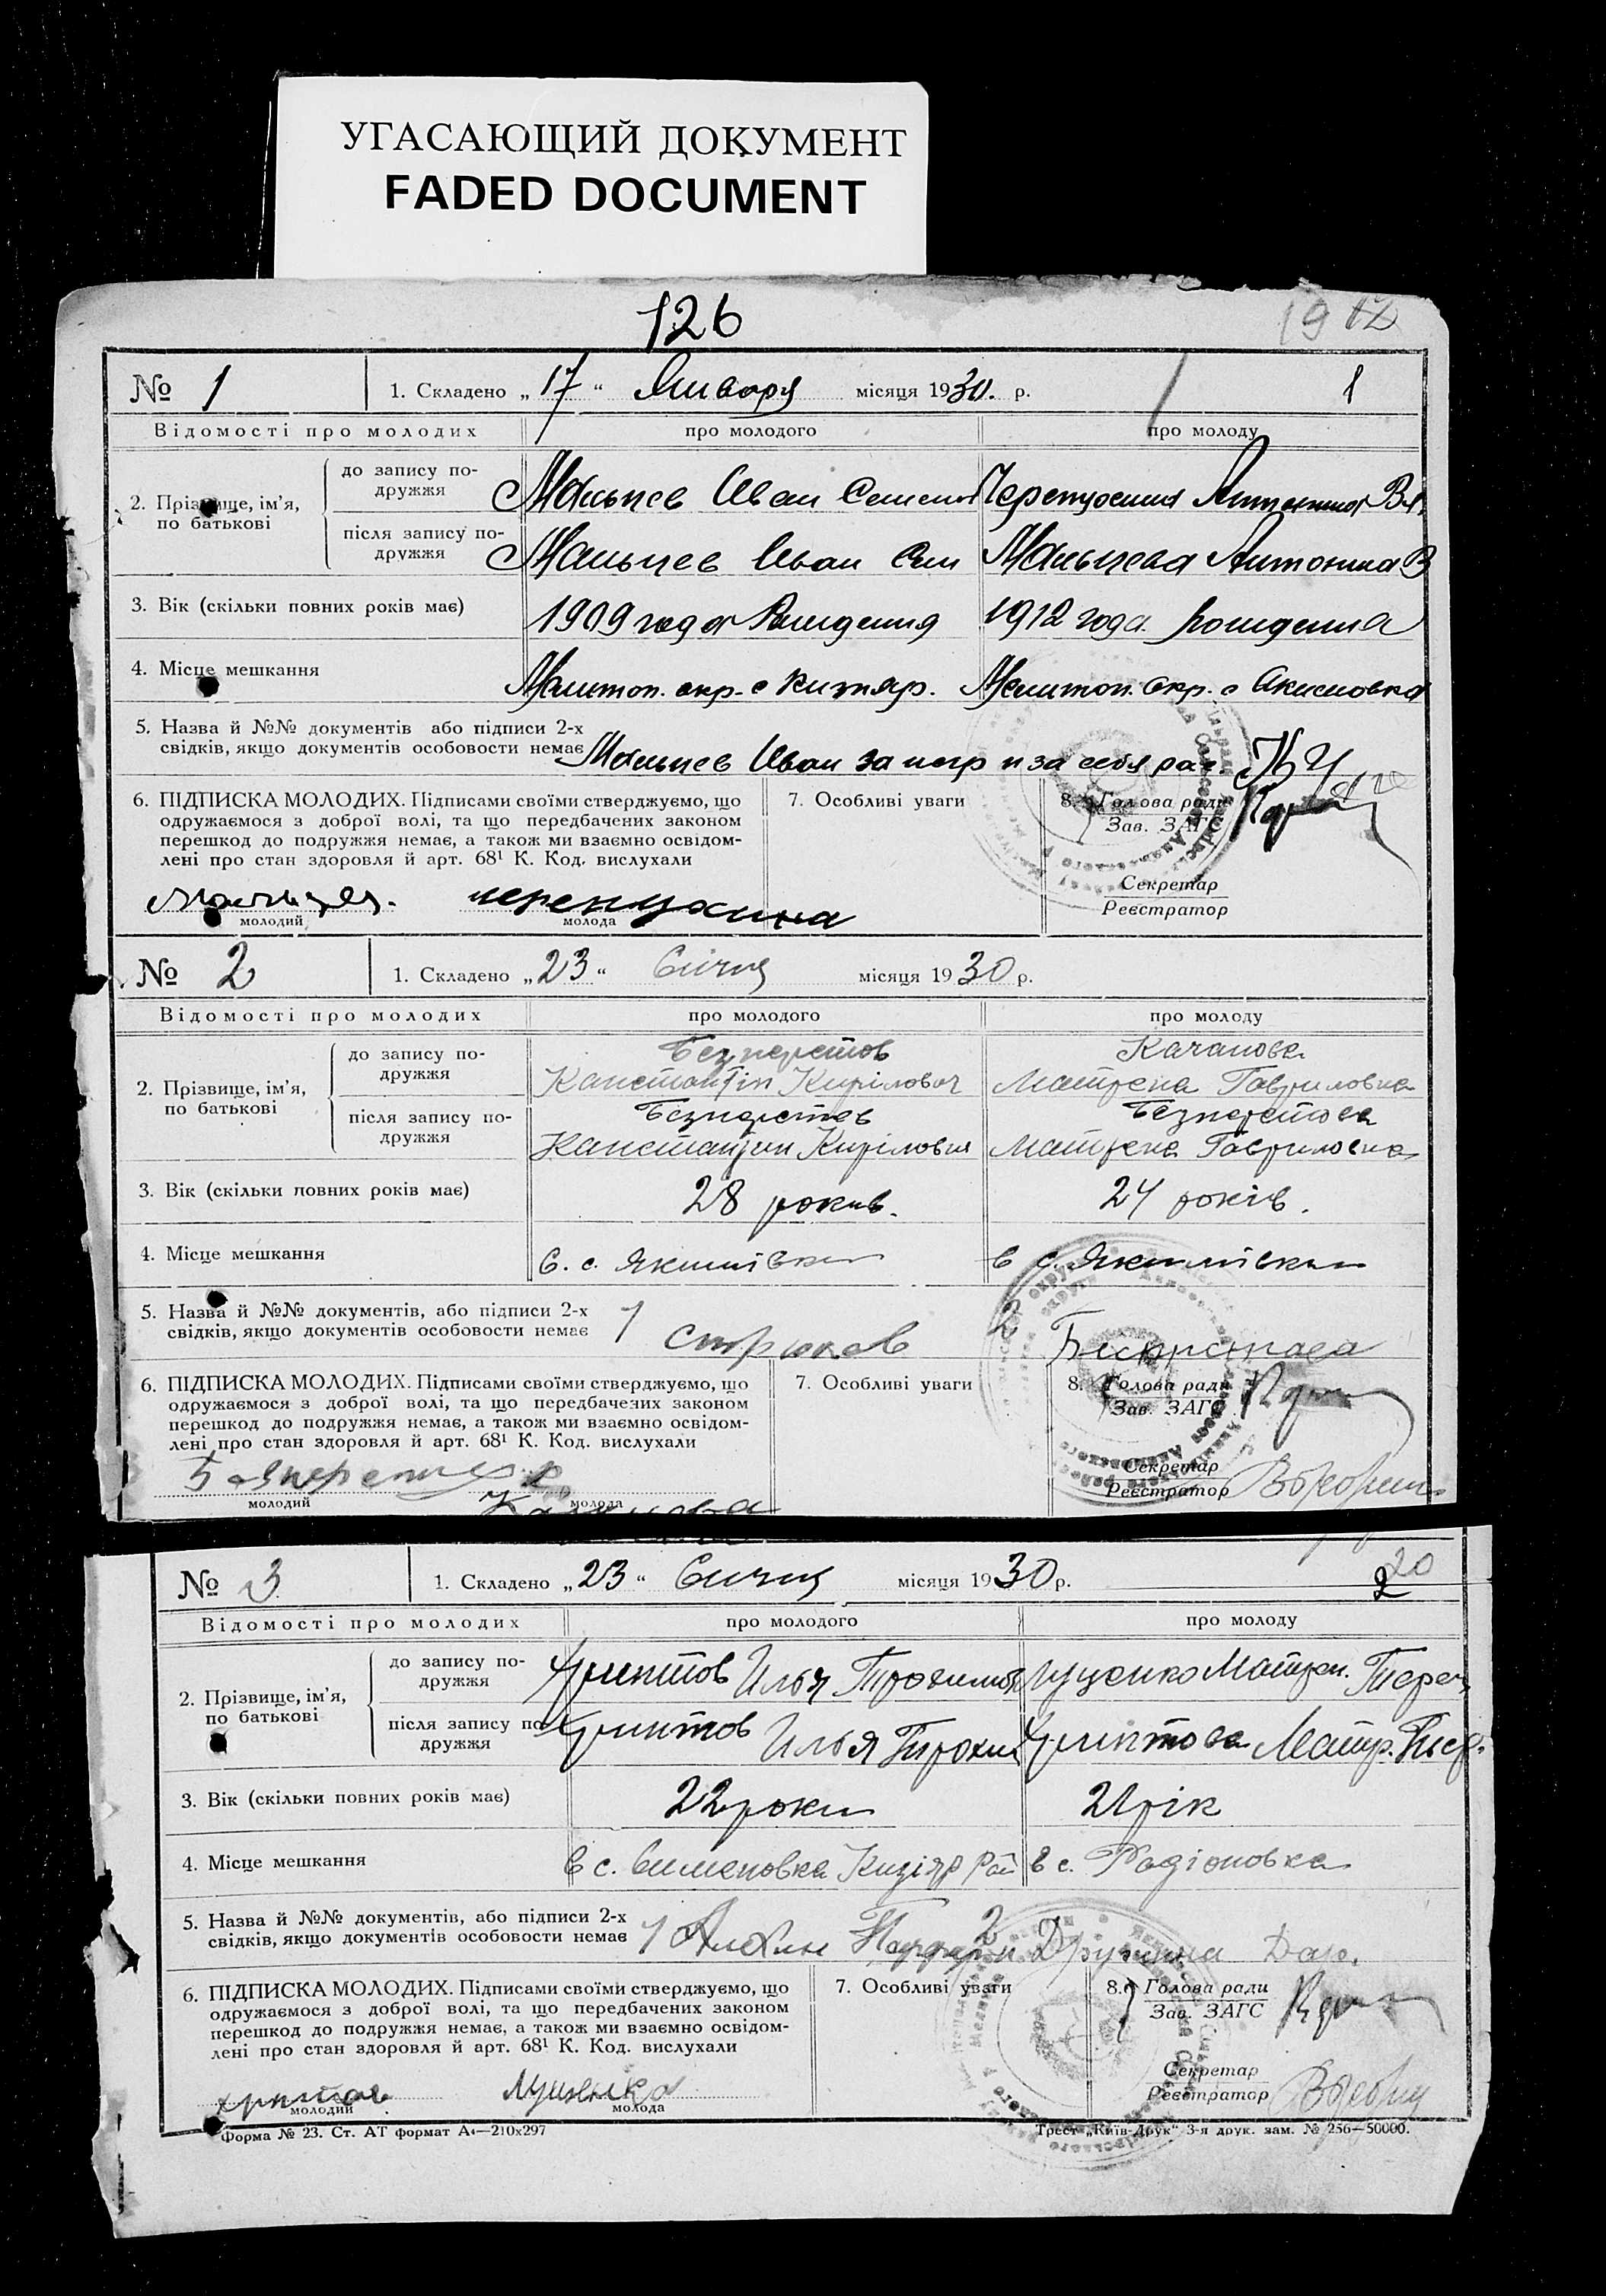 УГАСАЮЩИЙ ДОКУМЕНТ
FADED DOCUMENT
126
19 12
№ 1
1. Складено „17“ Января місяця 1930. р.
1
Відомості про молодих
про молодого
про молоду
2. Прізвище, ім'я, по батькові
до запису подружжя
Мальцев Иван
Антонина
після запису подружжя
Мальцев Иван Сем
Мальцева Антонина В
3. Вік (скільки повних років має)
1909 года Рождения
1912 года рождения
4. Місце мешкання
Мелитоп. окр. с Кизияр.
Мелитоп. окр. с Акимовка
5. Назва й №№ документів або підписи 2-х
свідків, якщо документів особовости немає
Мальцев Иван за негр и за себя рас.
6. ПІДПИСКА МОЛОДИХ. Підписами своїми стверджуємо, що
одружаємося з доброї волі, та що передбачених законом
перешкод до подружжя немає, а також ми взаємно освідом-
лені про стан здоровля й арт. 68¹ К. Код. вислухали
молодий
черепухина
молода
7. Особливі уваги
8. Голова ради
Зав. ЗАГС
Секретар
Реєстратор
№ 2
1. Складено „23“ Січня місяця 1930 р.
Відомості про молодих
про молодого
про молоду
2. Прізвище, ім'я,
по батькові
до запису по-
дружжя
Безперстов
Канстантін Кирілович
Качанова
Матрена Гавриловна
після запису по-
дружжя
Безперстов
Канстантин Кирілович
Безперстова
Матрена Гавриловна
3. Вік (скільки повних років має)
28 років.
24 років.
4. Місце мешкання
в. с. Якимівки
в с. Якимівки
5. Назва й №№ документів, або підписи 2-х
свідків, якщо документів особовости немає
1 Стрюков
2
6. ПІДПИСКА МОЛОДИХ. Підписами своїми стверджуємо, що
одружаємося з доброї волі, та що передбачених законом
перешкод до подружжя немає, а також ми взаємно освідом-
лені про стан здоровля й арт. 68¹ К. Код. вислухали
молодий
молода
7. Особливі уваги
8. Голова ради
Зав. ЗАГС
Секретар
Реєстратор
№ 3
1. Складено „23“ Січня місяця 1930 р.
20
2
Відомості про молодих
про молодого
про молоду
2. Прізвище, ім'я,
по батькові
до запису по-
дружжя
Хриптов Илья
Луценко Матрен.
після запису по-
дружжя
Хриптов Илья Трохим
Хриптова Матр.
3. Вік (скільки повних років має)
22 роки
21 рік
4. Місце мешкання
в с. Семеновка Кизіяр рай
в с. Радіоновка
5. Назва й №№ документів, або підписи 2-х
свідків, якщо документів особовости немає
1
2
6. ПІДПИСКА МОЛОДИХ. Підписами своїми стверджуємо, що
одружаємося з доброї волі, та що передбачених законом
перешкод до подружжя немає, а також ми взаємно освідом-
лені про стан здоровля й арт. 68¹ К. Код. вислухали
хриптов
молодий
молода
7. Особливі уваги
8. Голова ради
Зав. ЗАГС
Секретар
Реєстратор
Форма № 23. Ст. АТ формат А4—210х297
Трест „Київ-Друк“ 3-я друк. зам. № 256—50000.